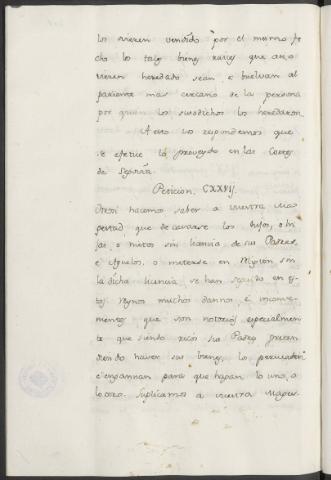 los vieren vendido por el mesmo fe
cho lo tales bienes raices que ansi
vieren heredado sean, e buelvan al
pariente mas cercano de la persona
por quien los susodichos los heredaron
A esto vos respondemos que
se efetue lo proveydo en las Cortes
de Segovia.
Peticion. CXXVIJ.
Otrosi hacemos saber a vuestra Ma
gestad que de casarse los hijos, o hi
jas, o nietos sin licencia de sus Padres,
e Aguelos, o meterse en Religion sin
la dicha licencia se han seguido en es
tos Reynos muchos dannos, e inconve
nientes que son notorios especialmen
te que siendo ricos sus Padres preten
diendo haver sus bienes, los persuaden
e engannan para que hagan lo uno, o
lo otro. Suplicamos a vuestra Mages